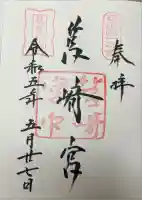 奉拝
筥崎宮
令和五年五月廿七日